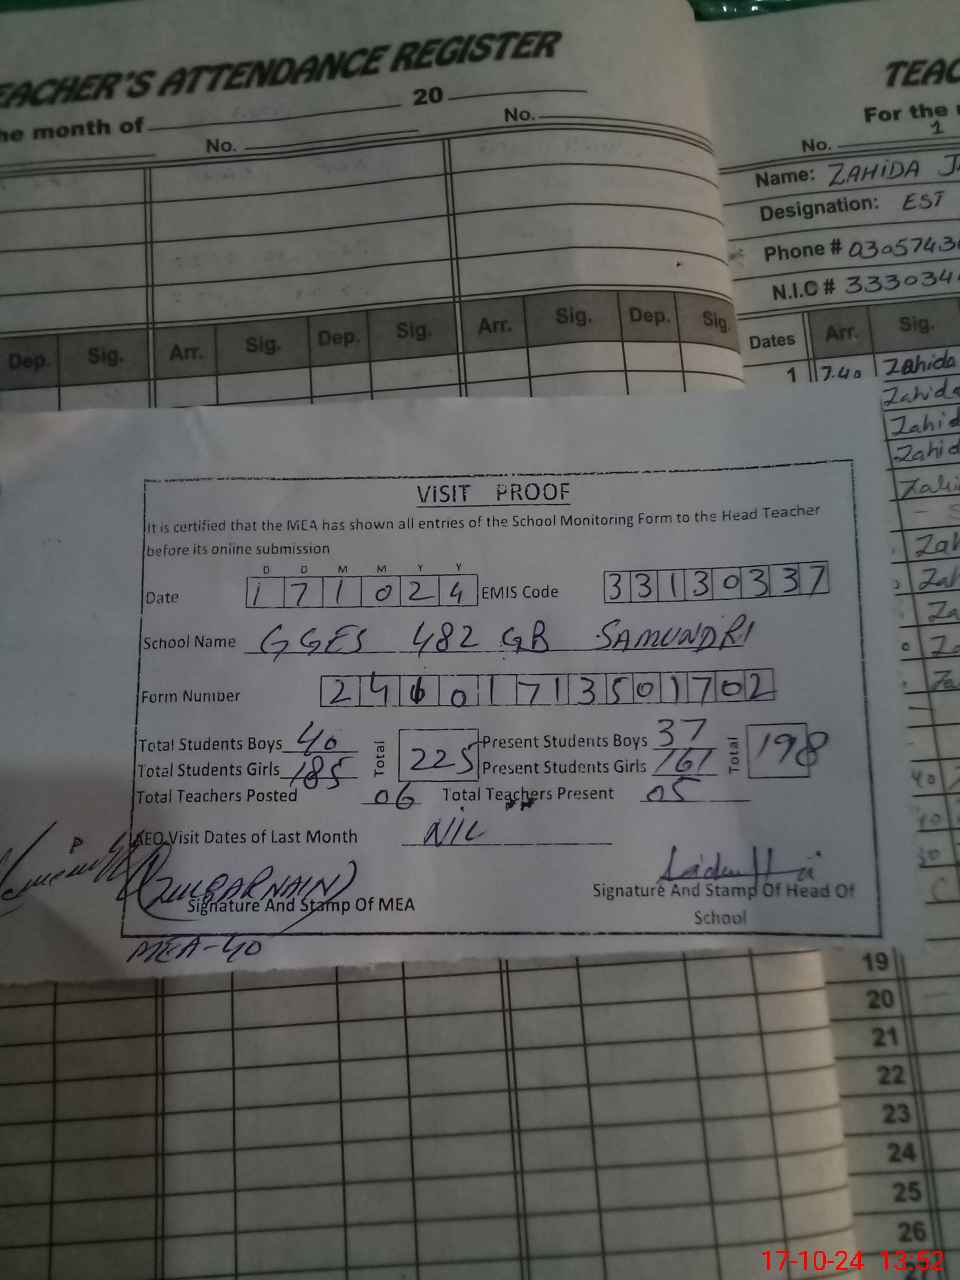 TEACHER'S ATTENDANCE REGISTER
the month of 20
No. No.
Dep. Sig. Arr. Sig. Dep. Sig. Arr. Sig. Dep. Sig.
TEAC
For the
No. 1
Name: ZAHIDA
Designation: EST
Phone # 0305743
N.I.C # 333034
Dates Arr. Sig.
1 7.40 Zahida
Zahida
Zahid
Zahid
VISIT PROOF
It is certified that the MEA has shown all entries of the School Monitoring Form to the Head Teacher
before its online submission
D D M M Y Y
Date 171024 EMIS Code 33130337
School Name GGES 482 GB SAMUNDRI
Form Number 24601713501702
Total Students Boys 40 Present Students Boys 37
Total 225 Total 198
Total Students Girls 185 Present Students Girls 161
Total Teachers Posted 06 Total Teachers Present 05
AEO Visit Dates of Last Month NIL
(ZULQARNAIN)
Signature And Stamp Of MEA
Signature And Stamp Of Head Of
School
MEA-40
19
20
21
22
23
24
25
26
17-10-24 13:52